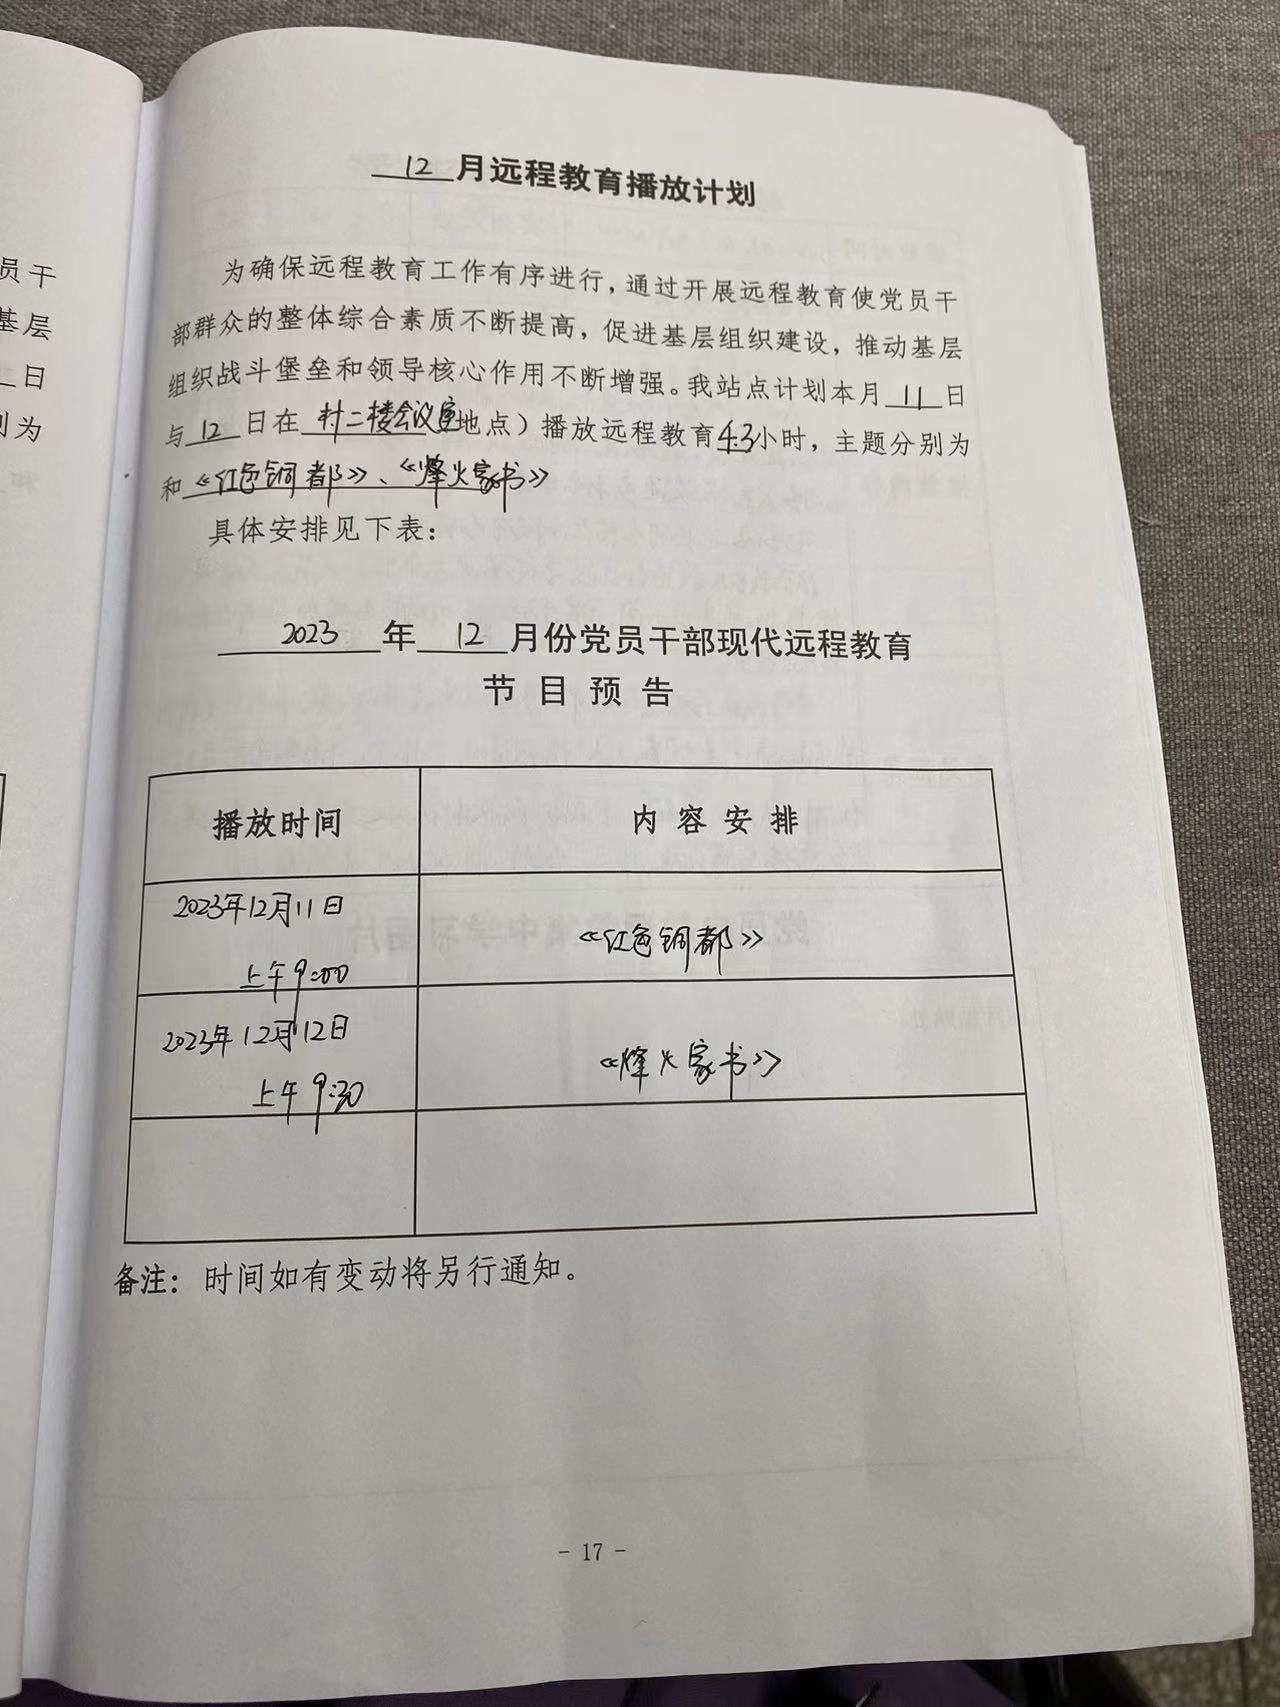 员干
基层
日
别为
12 月远程教育播放计划
为确保远程教育工作有序进行，通过开展远程教育使党员干
部群众的整体综合素质不断提高，促进基层组织建设，推动基层
组织战斗堡垒和领导核心作用不断增强。我站点计划本月 11 日
与 12 日在 村二楼会议室地点）播放远程教育4.3小时，主题分别为
和《红色铜都》、《烽火家书》
具体安排见下表：
2023 年 12 月份党员干部现代远程教育
节目预告
播放时间 内容安排
2023年12月11日
上午9:00 《红色铜都》
2023年12月12日
上午9:30 《烽火家书》
备注：时间如有变动将另行通知。
- 17 -